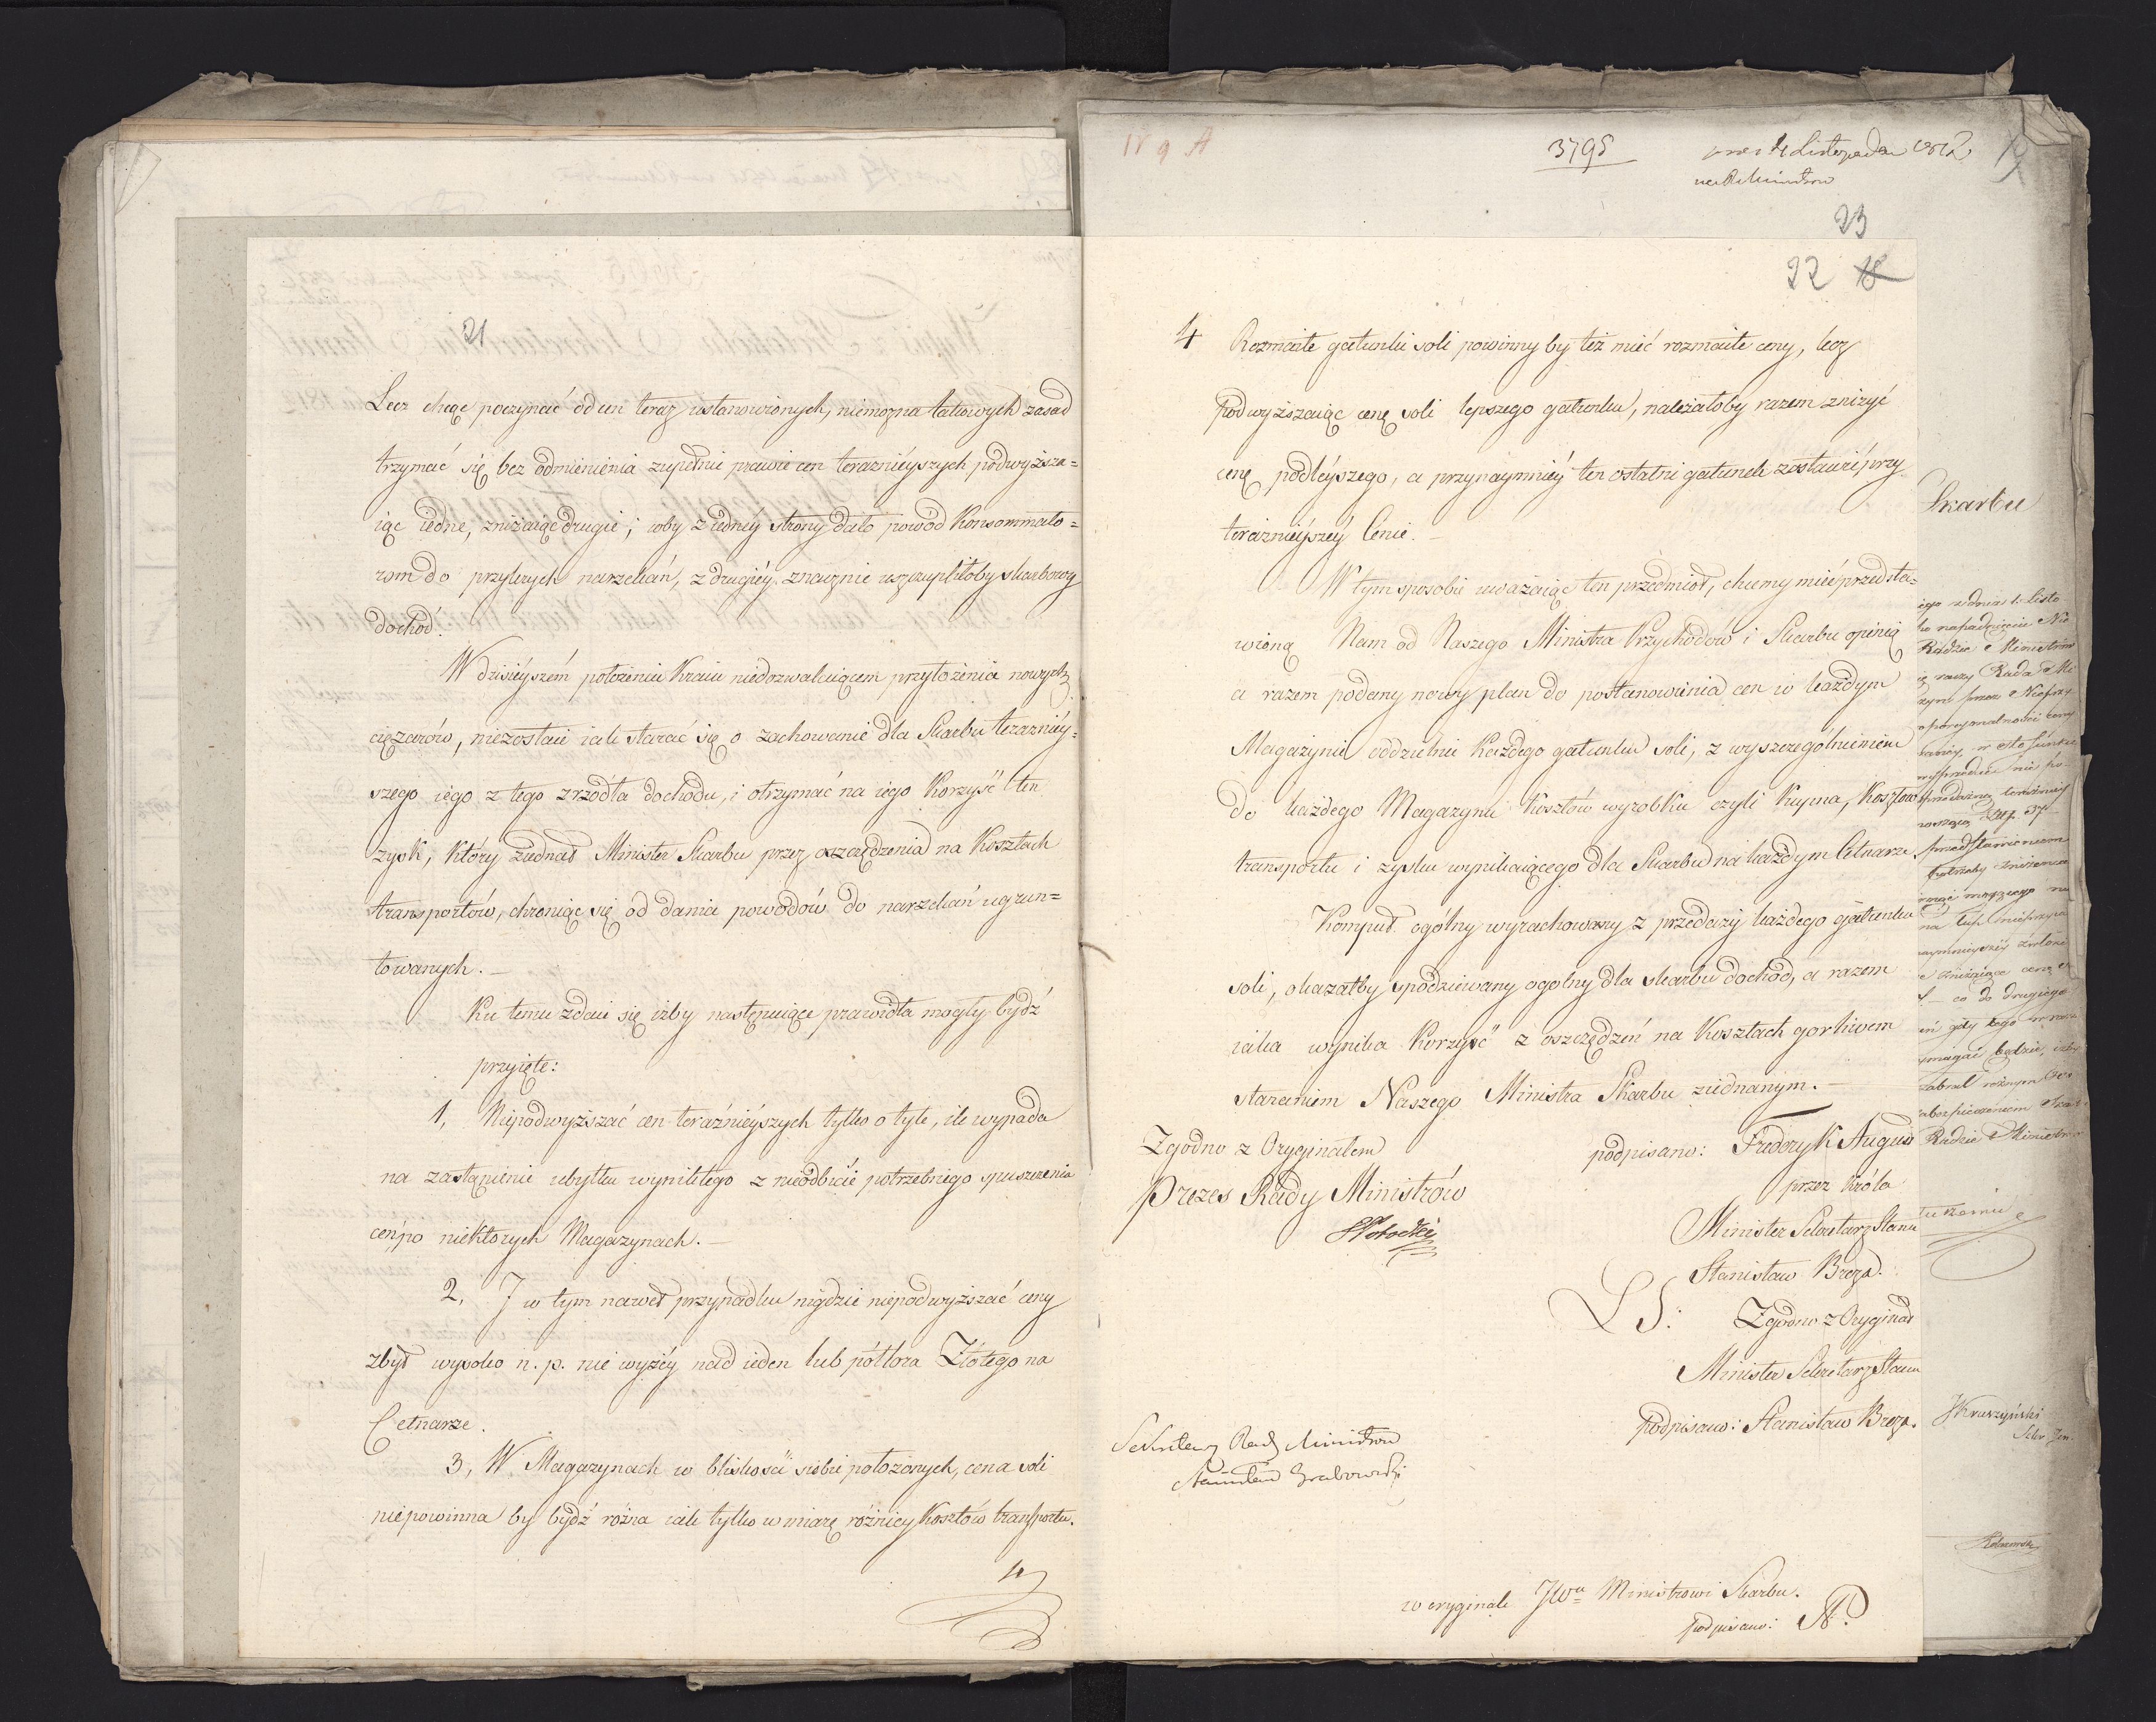 21
Lecz chcąc poczynać od cen teraz ustanowionych, niemożna takowych zasad
trzymać się bez odmienienia zupełnie prawie cen teraznieyszych podwyższa=
iąc iedne, zniżaiąc drugie; coby z iedney strony dało powod Konsommato=
rom do przykrych narzekań, z drugiéy znacznie uszczupliłoby skarbowy
dochod.
W dzisieyszém położeniu Kraiu niedozwalaiącem przyłożenia nowych
ciężarów, niezostaie iak starać się o zachowanie dla Skarbu teraznièy=
szego iego z tego zrzódła dochodu, i otrzymać na iego Korzyść ten
zysk, Który ziednał Minister Skarbu przez oszczędzenia na Kosztach
transportów, chroniąc się od dania powodów do narzekań ugrun=
towanych. —
Ku temu zdaie się iżby następuiące prawidła mogły bydź
przyięte:
1, Niepodwyższać cen teraźnièyszych tylko o tyle, ile wypada
na zastąpienie ubytku wynikłego z nieodbicie potrzebnego spuszczenia
ceń po niektorych Magazynach. —
2, I w tym nawet przypadku nigdzie niepodwyższać ceny
zbyt wysoko n. p. nie wyżéy nad ieden lub półtora Złotego na
Cetnarze.
3, W Magazynach w bliskości siebie położonych, cena soli
niepowinna by bydź rożna iak tylko w miarę różnicy Kosztów transportu.
4
IV 9 A
3795
4 Listopada 1812
na R. Ministrow
23
22 18
4 Rozmaite gatunki soli powinny by też mieć rozmaite ceny, lecz
podwyższaiąc cenę soli lepszego gatunku, należałoby razem zniżyć
cenę podléyszego, a przynaymniéy ten ostatni gatunek zostawić przy
teraznieyszéy Cenie. —
W tym sposobie uważaiąc ten przedmiot, chcemy mieć przedsta=
wioną Nam od Naszego Ministra Przychodów i Skarbu opinią
a razem podany nowy plan do postanowienia cen w każdym
Magazynie oddzielnie Każdego gatunku soli, z wyszczególnieniem
do każdego Magazynu Kosztów wyrobku czyli Kupna, Kosztów
transportu i zysku wynikaiącego dla Skarbu na każdym Cetnarze.
Komput ogólny wyrachowany z przedaży każdego gatunku
soli, okazałby spodziewany ogolny dla skarbu dochod, a razem
iaka wynika Korzyść z oszczędzeń na Kosztach gorliwem
staraniem Naszego Ministra Skarbu ziednanym. —
Zgodno z Oryginałem
Prezes Rady Ministrów
SPotocki
podpisano: Fryderyk August
przez Króla
Minister Sekretarz Stanu
Stanisław Breza.
LS: Zgodno z Oryginał
Minister Sekretarz Stanu
podpisano: Stanisław Breza.
Sekretarz Rady Ministrow
Stanisław Grabowski
w oryginale JWu Ministrowi Skarbu.
podpisano:
Skarbu
iego z dnia 1. Listo
Radzie Ministrów
ią raczy Rada Mi
co do drugiego
ień gdy tego
ymagać będzie,
Radzie Ministrów
JKruszyński
Sekr. Jen.